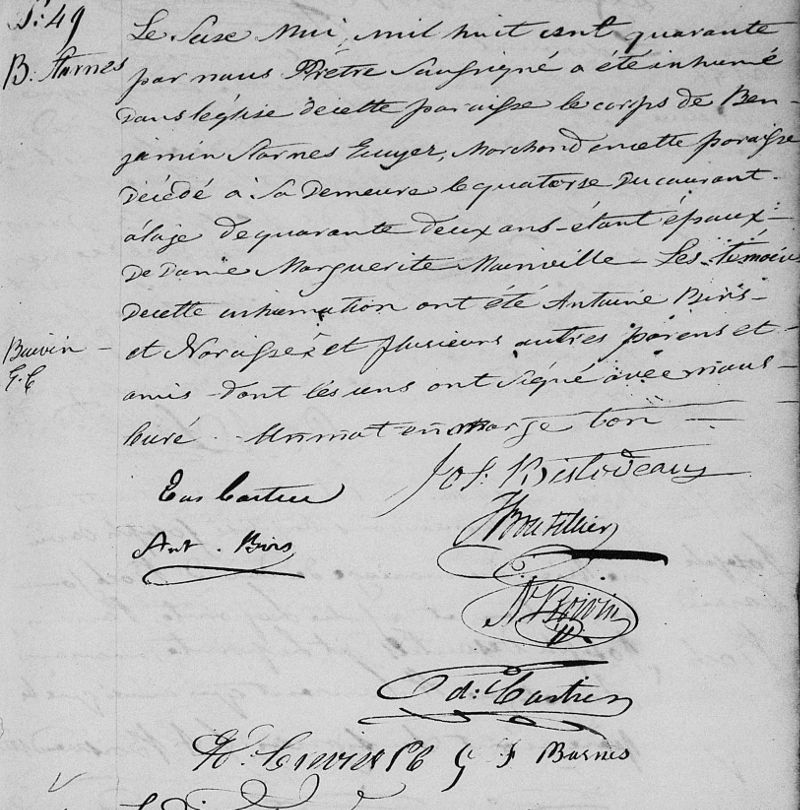 S: 49
B. Starnes
Le Seize Mai, mil huit cent quarante
par nous Prêtre Sousigné a été inhumé
dans léglise decette paroisse le corps de Ben-
jamin Starnes Ecuyer, Marchand encette paroisse
décédé à Sa demeure le quatorse du courant.
àlage de quarante deux ans - étant épaux-
de Dame Marguerite Mainville - Les témoins
decette inhumation ont été Antoine Birs -
et plusieurs autres parens et -
amis - dont les uns ont Signé avec nous -
Curé. Un mot en marge bon -
Boivin -
Jos. Bélodeau
Eus Cartier
Boutillier
Ant. Birs
N. Boivin
d: Cartier
J Barnes